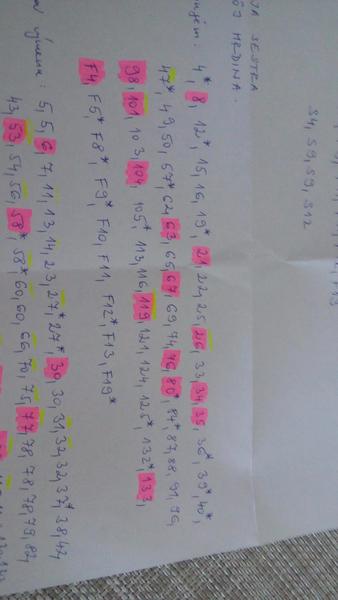 S4, S9, S9, S12
SESTRA
HRDINA.
4*, 8, 12*, 15, 16, 19*, 21, 22, 25, 26, 33, 34, 35, 36*, 39*, 40*,
47*, 49, 50, 57*, 62, 63, 65, 67, 69, 74, 76, 80*, 84*, 87, 88, 91, 96,
98, 101, 103, 104, 105*, 113, 116, 119, 121, 124, 125*, 132*, 133,
F4, F5*, F8*, F9*, F10, F11, F12*, F13, F19*
výmena: 5, 5, 6, 7, 11, 13, 14, 23, 27*, 27*, 30, 30, 31, 32, 32, 37*, 38, 42,
43, 53, 54, 56, 58*, 58*, 60, 60, 66, 70, 75, 77, 78, 78, 78, 79, 82,